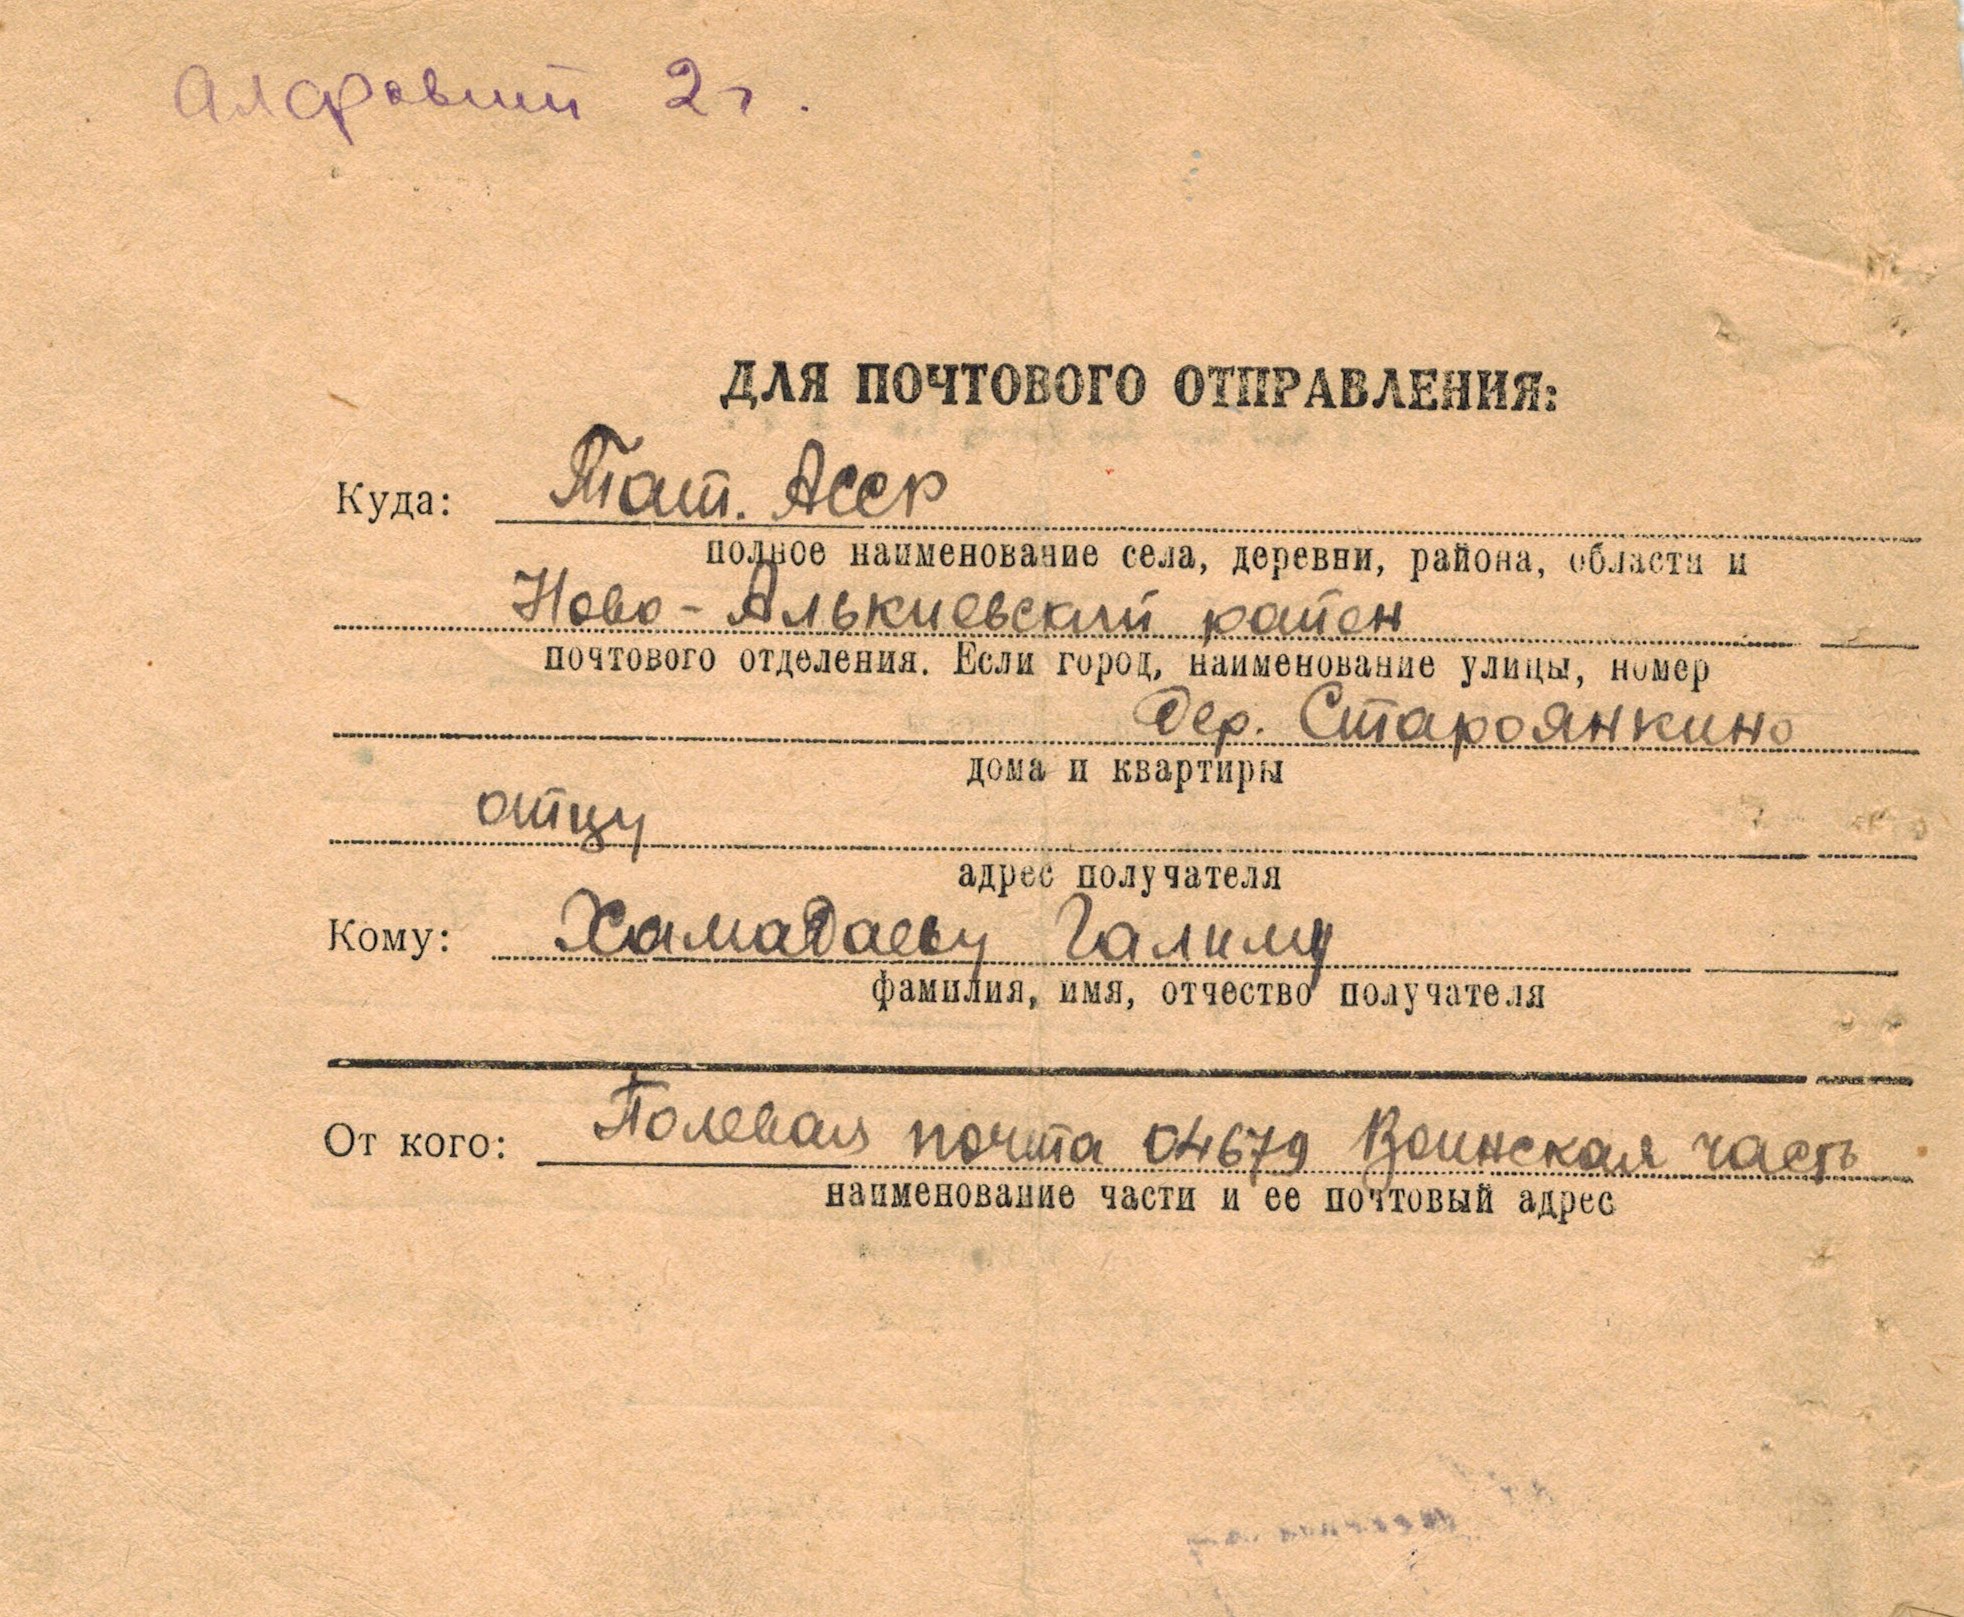 2г.
ДЛЯ ПОЧТОВОГО ОТПРАВЛЕНИЯ:
Куда: Тат. Асср
полное наименование села, деревни, района, области и
Ново-Алькиевский район
почтового отделения. Если город, наименование улицы, номер
дер. Старояникино
дома и квартиры
отцу
адрес получателя
Кому: Хамадаеву Галиму
фамилия, имя, отчество получателя
От кого: Полевая почта 04679 Воинская часть
наименование части и ее почтовый адрес